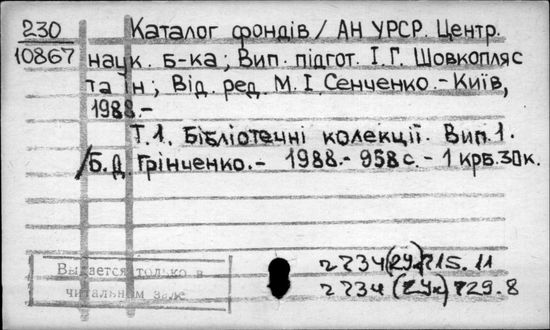 230
10867
Каталог фондів / АН УРСР. Центр.
наук. б-ка; Вип. підгот. І. Г. Шовкопляс
та ін; Від. ред. М. І. Сенченко.- Київ,
1988.-
Т.1. Бібліотечні колекції. Вип.1.
/Б.Д. Грінченко.- 1988.- 958с.- 1 крб.30к.
2734(2Ук)715.11
2734(2Ук)729.8
Выдается только в
читальном зале